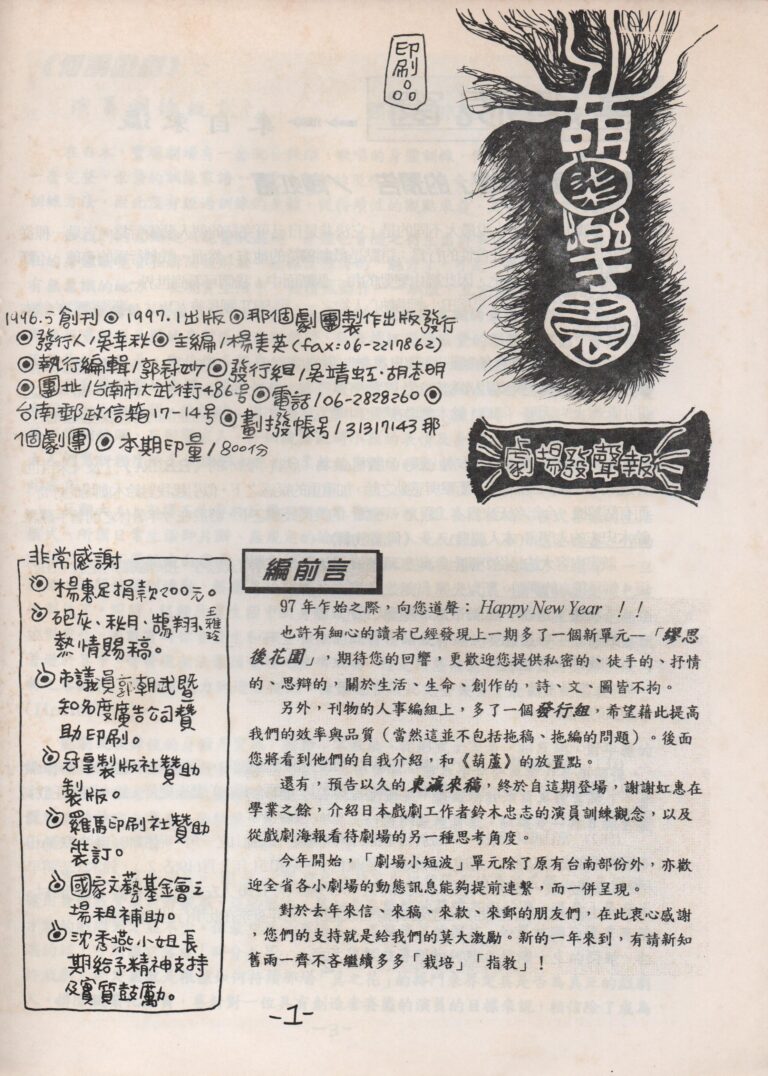 印刷品
葫蘆樂園
劇場發聲報
1996.5創刊◎1997.1出版◎那個劇團製作出版發行
◎發行人/吳幸秋◎主編/楊美英(fax:06-2217862)
◎執行編輯/郭冠妙◎發行組/吳靖虹·胡志明
◎團址/台南市大武街486号◎電話/06-2828260◎
台南郵政信箱17-14号◎劃撥帳号/31317143那
個劇團◎本期印量/800份
非常感謝
◎楊惠足捐款200元。
◎砲灰、秋月、鵠翔、王雅玲
熱情賜稿。
◎市議員郭朝武暨
知名度廣告公司贊
助印刷。
◎冠皇製版社贊助
製版。
◎羅馬印刷社贊助
裝訂。
◎國家文藝基金會之
場租補助。
◎沈秀燕小姐長
期給予精神支持
及實質鼓勵。
編前言
97年作始之際,向您道聲:Happy New Year !!
也許有細心的讀者已經發現上一期多了一個新單元--「繆思
後花園」,期待您的回響,更歡迎您提供私密的、徒手的、抒情
的、思辯的,關於生活、生命、創作的,詩、文、圖皆不拘。
另外,刊物的人事編組上,多了一個發行組,希望藉此提高
我們的效率與品質(當然這並不包括拖稿、拖編的問題)。後面
您將看到他們的自我介紹,和《葫蘆》的放置點。
還有,預告以久的東瀛來稿,終於自這期登場,謝謝虹惠在
學業之餘,介紹日本戲劇工作者鈴木忠志的演員訓練觀念,以及
從戲劇海報看待劇場的另一種思考角度。
今年開始,「劇場小短波」單元除了原有台南部份外,亦歡
迎全省各小劇場的動態訊息能夠提前連繫,而一併呈現。
對於去年來信、來稿、來款、來郵的朋友們,在此衷心感謝
,您們的支持就是給我們的莫大激勵。新的一年來到,有請新知
舊雨一齊不吝繼續多多「栽培」「指教」!
-1-